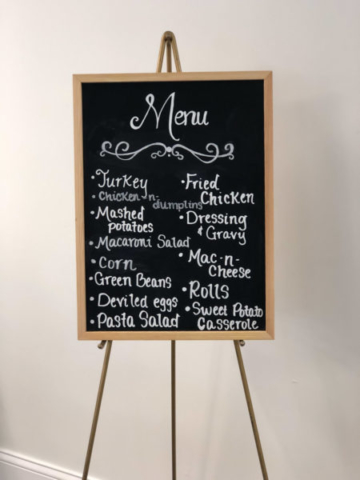 Menu
• Turkey
• Chicken -n- dumplins
• Mashed
potatoes
• Macaroni Salad
• Corn
• Green Beans
• Deviled eggs
• Pasta Salad
• Fried
Chicken
• Dressing
& Gravy
• Mac-n-
Cheese
• Rolls
• Sweet Potato
Casserole